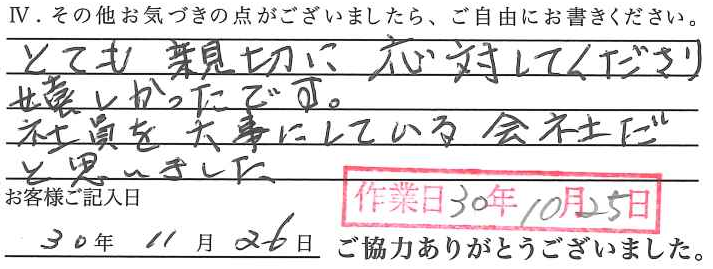 Ⅳ．その他お気づきの点がございましたら、ご自由にお書きください。
とても親切に応対してくださり
嬉しかったです。
社員を大事にしている会社だ
と思いました
お客様ご記入日
作業日30年10月25日
30年11月26日 ご協力ありがとうございました。